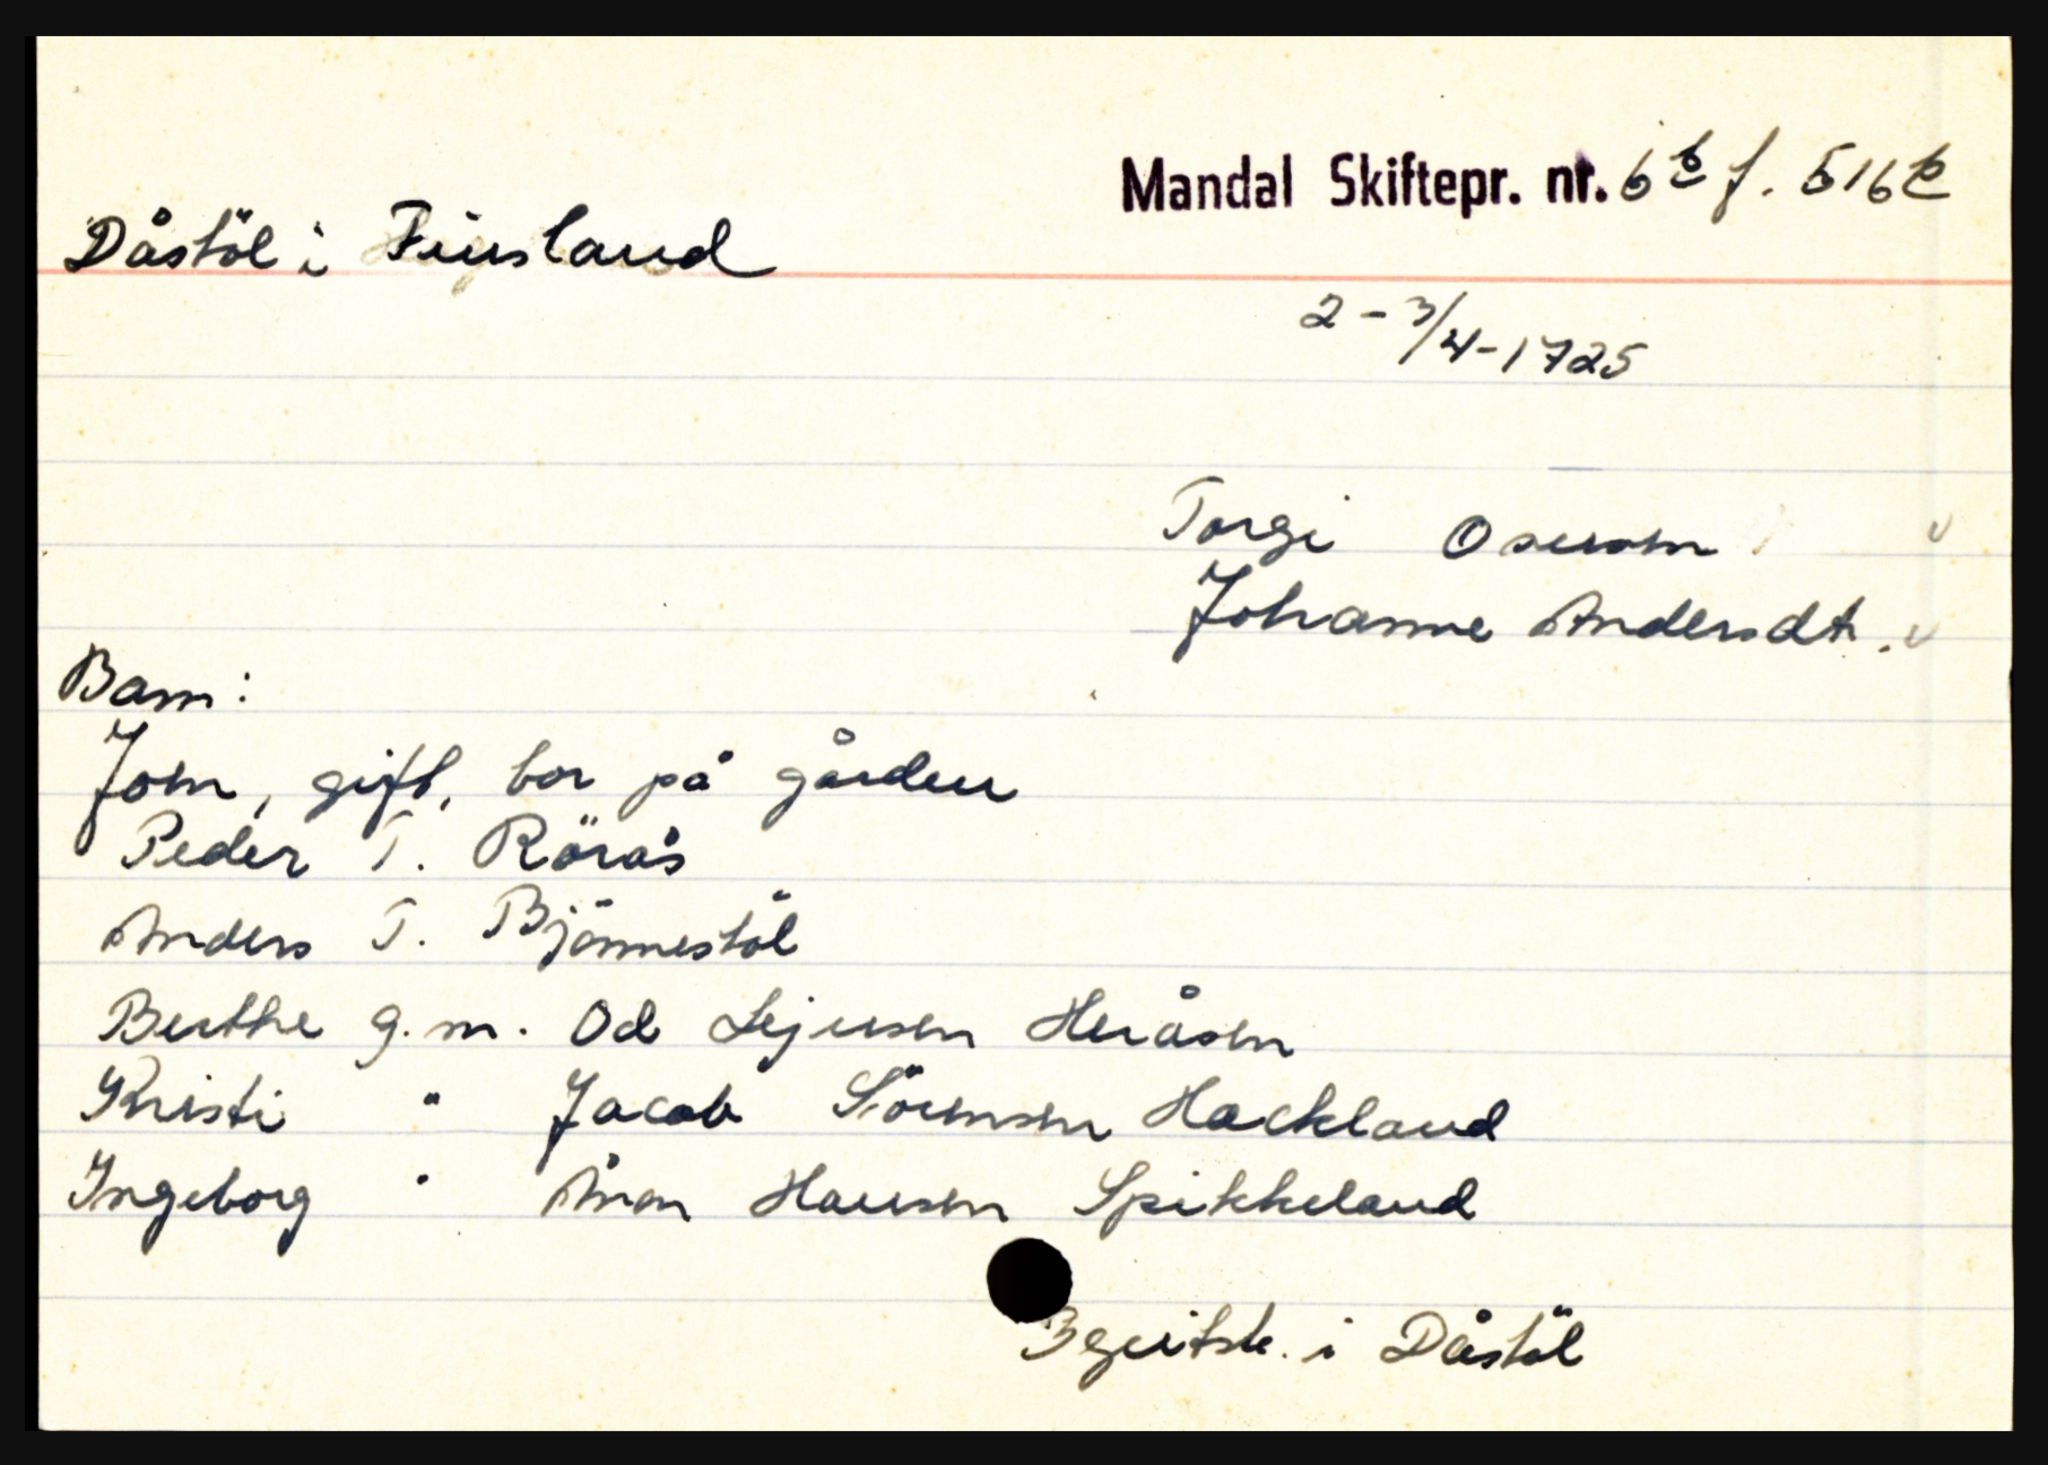 Mandal Skiftepr. nr. 6b f. 516b
Dåstöl i Finsland
2-3/4-1725
Torgi Osuson
Johanne Andersdt.
Barn:
Jon, gift, bor på gården
Peder T. Rörås
Anders T. Bjönnestöl
Berthe g.m. Od Lejusen Heråsen
Kristi " Jacob Sörensen Hackland
Ingeborg "Ånon Hansen Spikkeland
3 geitsk. i Dåstöl